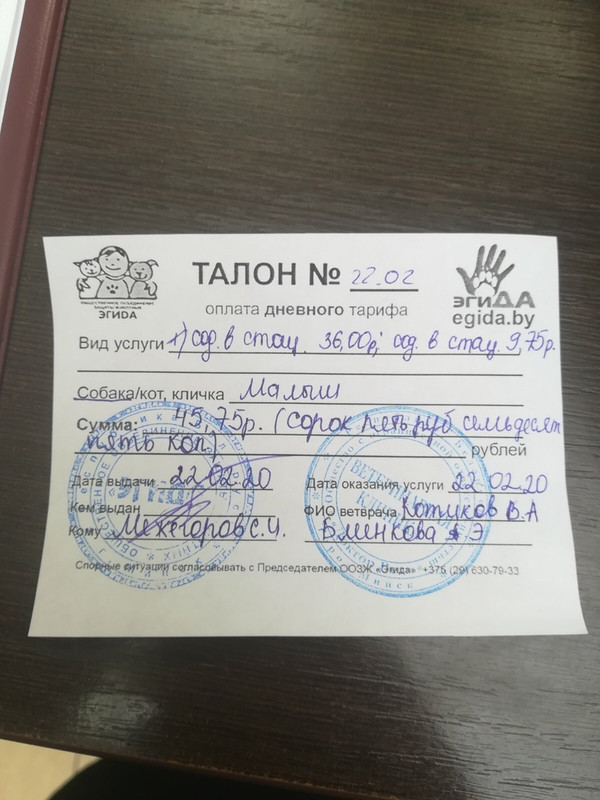 ТАЛОН № 22.02
оплата дневного тарифа
ЭГИДА
ЭГИДА
egida.by
Вид услуги 1) сод. в стац. 36,00р; сод. в стац. 9,75р.
Собака/кот, кличка Малыш
Сумма: 45,75р. (сорок пять руб семьдесят
пять коп) рублей
Дата выдачи 22.02.20 Дата оказания услуги 22.02.20
Кем выдан ФИО ветврача Котиков В.А
Кому С.И. Блинкова А Э
Спорные ситуации согласовывать с Председателем ООЗЖ «Эгида» +375 (29) 630-79-33